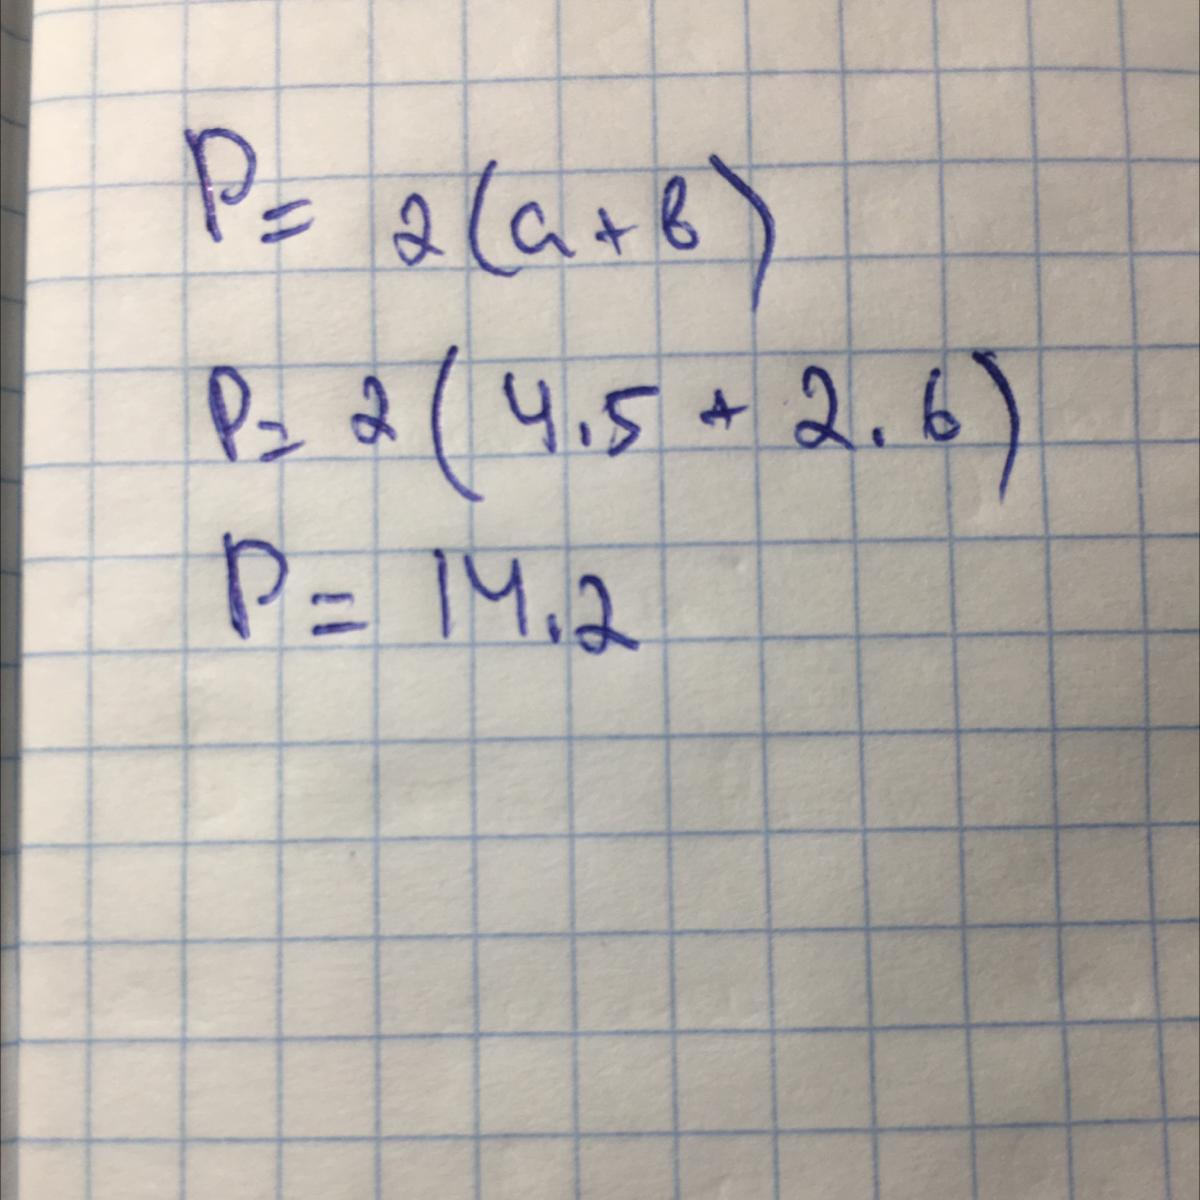 P= 2(a+b)
P= 2(4.5+2.6)
P= 14.2